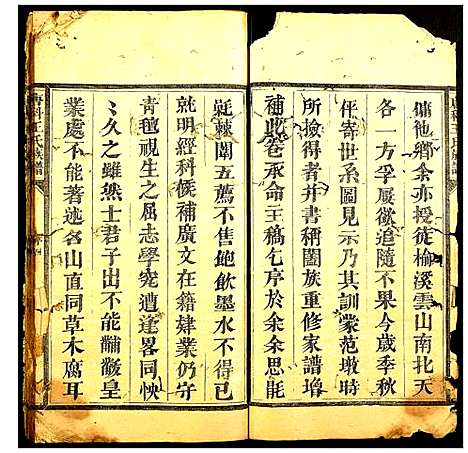 傭他鄉余亦授徒榆溪雲山南北天
各一方孚屢欲追隨不果今歲季秋
伻寄世系圖見示乃其訓蒙范墩時
所撿得者并書稱闔族重修家譜增
補此卷承命主稿乞序於余余思毷
毷棘闈五薦不售飽飲墨水不得已
就明經科候補廣文在籍肄業仍守
青氊視生之屈志學究遭逢畧同怏
〻久之雖然士君子出不能黼黻皇
業處不能著述名山直同草木腐耳
唐科王氏族譜